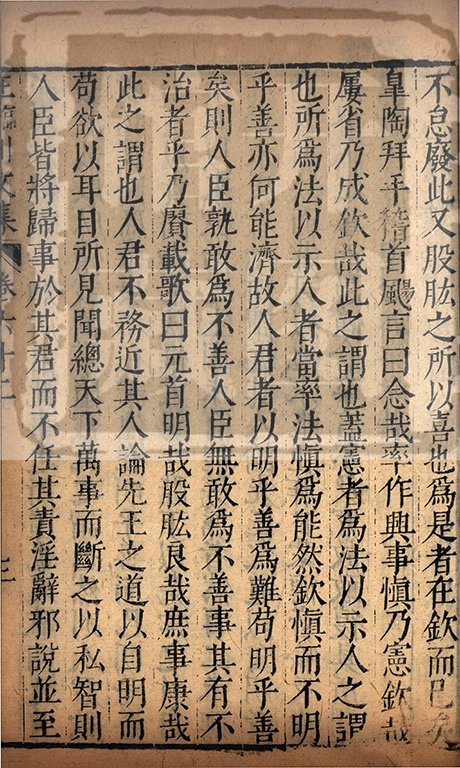 不怠廢此又股肱之所以喜也爲是者在欽而已矣
皐陶拜手稽首颺言曰念哉率作興事慎乃憲欽哉
屢省乃成欽哉此之謂也蓋憲者爲法以示人之謂
也所爲法以示人者當率法慎爲能然欽慎而不明
乎善亦何能濟故人君者以明乎善爲難苟明乎善
矣則人臣孰敢爲不善人臣無敢爲不善事其有不
治者乎乃賡載歌曰元首明哉股肱良哉庶事康哉
此之謂也人君不務近其人論先王之道以自明而
苟欲以耳目所見聞總天下萬事而斷之以私智則
人臣皆將歸事於其君而不任其責淫辭邪說並至
王臨川文集 卷六十二 三